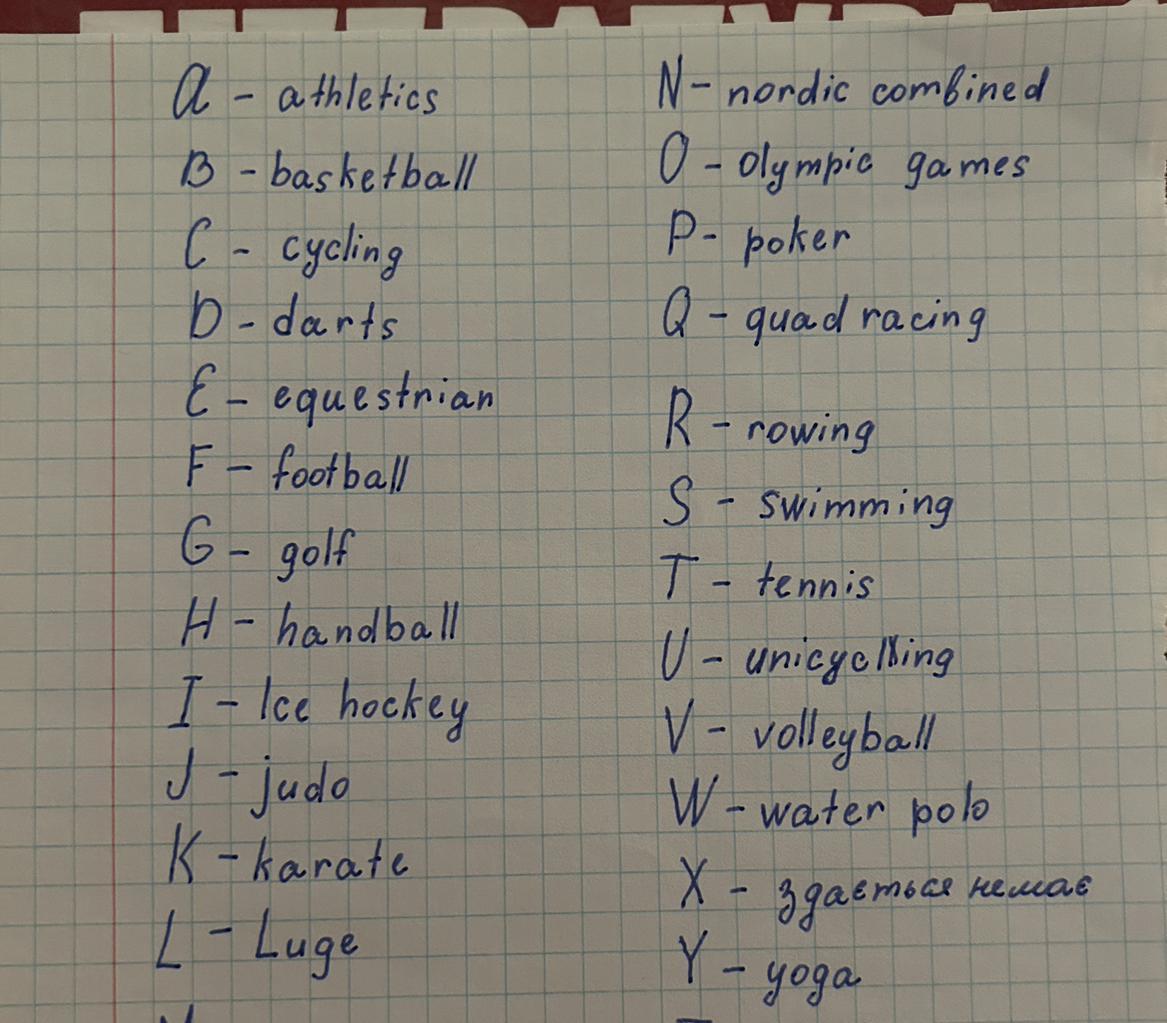 A - athletics
B - basketball
C - cycling
D - darts
E - equestrian
F - football
G - golf
H - handball
I - Ice hockey
J - judo
K - karate
L - Luge
N - nordic combined
O - olympic games
P - poker
Q - quad racing
R - rowing
S - swimming
T - tennis
U - unicycling
V - volleyball
W - water polo
X - здається немає
Y - yoga